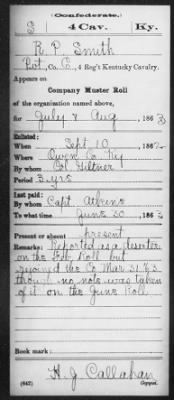 Confederate.
S 4 Cav. Ky.
R. P. Smith
Pvt, Co. C, 4 Reg't Kentucky Cavalry.
Appears on
Company Muster Roll
of the organization named above,
for July & Aug, 1863
Enlisted:
When Sept 10, 1862
Where Owen Co. Ky
By whom Col Giltner
Period 3 yrs
Last paid:
By whom Capt.
To what time June 30, 1863
Present or absent present
Remarks: Reported as a deserter
on the Feb Roll but
rejoined the Co Mar. 31 63
though no note was taken
of it on the June Roll
Book mark:
H. J. Callahan
(642) Copyist.